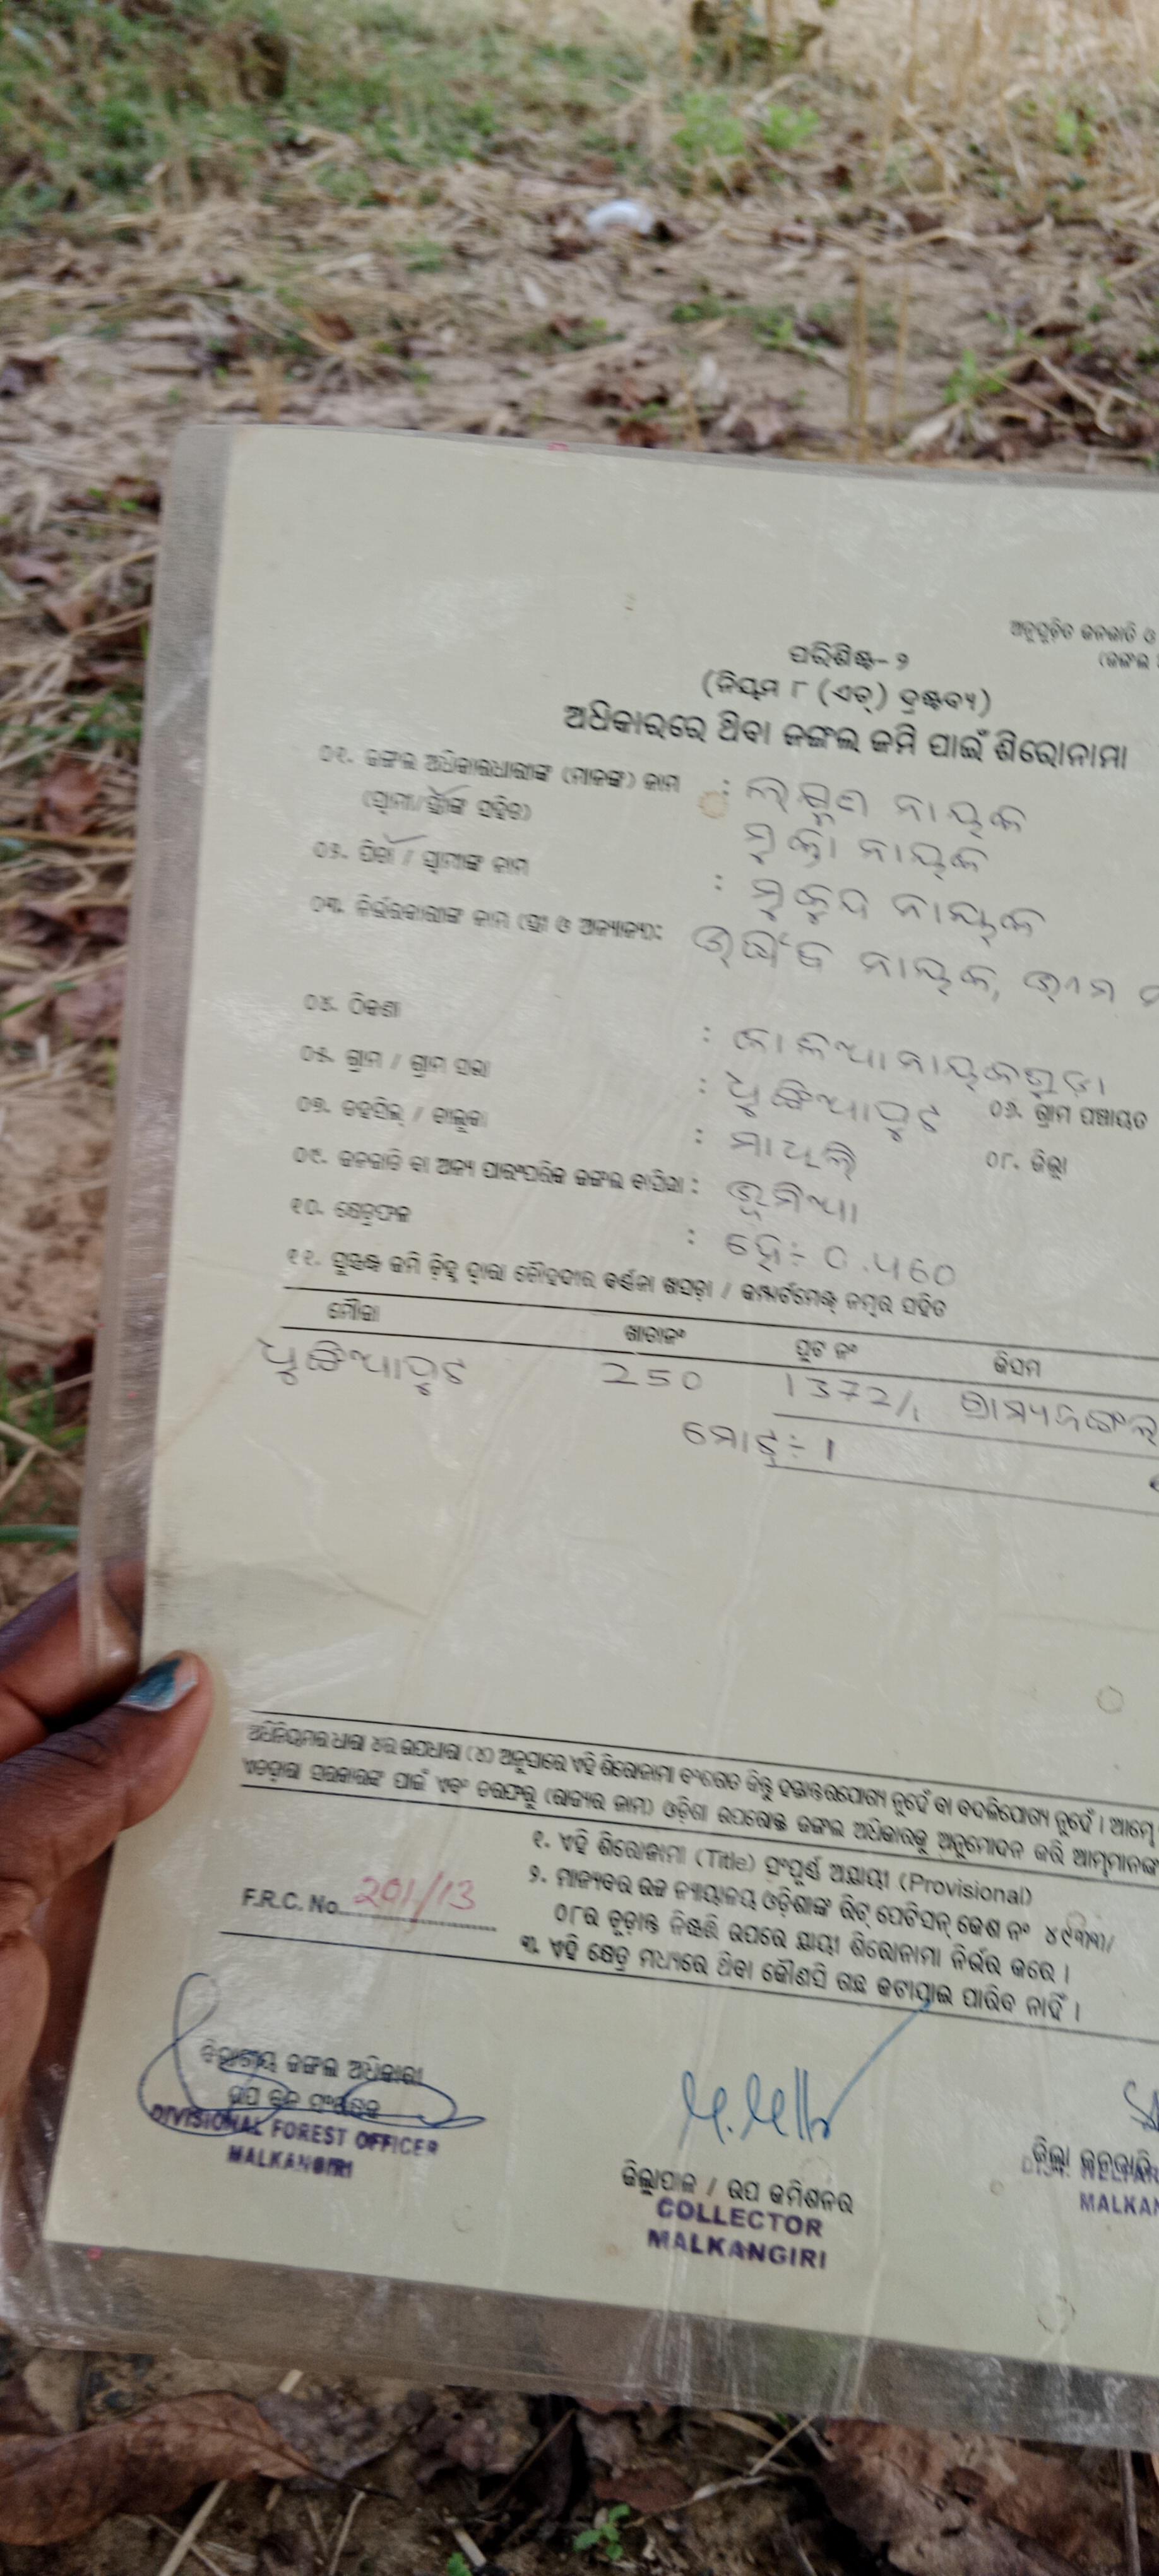 ଅନୁସୂଚିତ ଜନଜାତି ଓ
(ଜଙ୍ଗଲ
ପରିଶିଷ୍ଟ- ୨
(ନିୟମ ୮ (ଏଚ୍) ଦ୍ରଷ୍ଟବ୍ୟ)
ଅଧିକାରରେ ଥିବା ଜଙ୍ଗଲ ଜମି ପାଇଁ ଶିରୋନାମା
୦୧. ଜଙ୍ଗଲ ଅଧିକାରଧାରୀଙ୍କ (ମାନଙ୍କ) ନାମ : ଲକ୍ଷ୍ମଣ ନାୟକ
(ସ୍ୱାମୀ/ସ୍ତ୍ରୀଙ୍କ ସହିତ) ମୁକ୍ତା ନାୟକ
୦୨. ପିତା / ସ୍ୱାମୀଙ୍କ ନାମ : ମୁକୁନ୍ଦ ନାୟକ
୦୩. ନିର୍ଭରକାରୀଙ୍କ ନାମ (ସ୍ତ୍ରୀ ଓ ଅନ୍ୟାନ୍ୟ): ନାୟକ, ଭୀମ
୦୪. ଠିକଣା :
୦୫. ଗ୍ରାମ / ଗ୍ରାମ ସଭା : ଧୁଙ୍ଗିଆପୁଟ ୦୬. ଗ୍ରାମ ପଞ୍ଚାୟତ
୦୭. ତହସିଲ୍ / ତାଲୁକା : ମାଥିଲି ୦୮. ଜିଲ୍ଲା
୦୯. ଜନଜାତି ବା ଅନ୍ୟ ପାରଂପରିକ ଜଙ୍ଗଲ ବାସିନ୍ଦା : ଭୂମିଆ
୧୦. କ୍ଷେତ୍ରଫଳ : ହେ÷ 0.460
୧୧. ପ୍ରତ୍ୟକ୍ଷ ଜମି ଚିହ୍ନ ଦ୍ୱାରା ଚୌହଦୀର ବର୍ଣ୍ଣନା ଖସଡ଼ା / କମ୍ପାର୍ଟମେଣ୍ଟ ନମ୍ବର ସହିତ
ମୌଜା ଖାତାନଂ ପ୍ଲଟ ନଂ କିସମ
ଧୁଙ୍ଗିଆପୁଟ 250 1372/1 ଗ୍ରାମ୍ୟଜଙ୍ଗଲ
ମୋଟ÷ 1
ଅଧିନିୟମର ଧାରା ୪ର ଉପଧାରା (୪) ଅନୁସାରେ ଏହି ଶିରୋନାମା ବଂଶଗତ କିନ୍ତୁ ହସ୍ତାନ୍ତରଯୋଗ୍ୟ ନୁହେଁ ବା ବଦଳିଯୋଗ୍ୟ ନୁହେଁ । ଆମ୍ଭେ
ଏତଦ୍ୱାରା ସରକାରଙ୍କ ପାଇଁ ଏବଂ ତରଫରୁ (ରାଜ୍ୟର ନାମ) ଓଡ଼ିଶା ଉପରୋକ୍ତ ଜଙ୍ଗଲ ଅଧିକାରକୁ ଅନୁମୋଦନ କରି ଆମ୍ଭମାନଙ୍କ
୧. ଏହି ଶିରୋନାମା (Title) ସଂପୂର୍ଣ୍ଣ ଅସ୍ଥାୟୀ (Provisional)
୨. ମାନ୍ୟବର ଉଚ୍ଚ ନ୍ୟାୟାଳୟ ଓଡ଼ିଶାଙ୍କ ରିଟ୍ ପେଟିସନ୍ କେଶ ନଂ ୪୯୩୩/
F.R.C. No. 201/13
୦୮ର ଚୂଡ଼ାନ୍ତ ନିଷ୍ପତ୍ତି ଉପରେ ସ୍ଥାୟୀ ଶିରୋନାମା ନିର୍ଭର କରେ ।
୩. ଏହି କ୍ଷେତ୍ର ମଧ୍ୟରେ ଥିବା କୌଣସି ଗଛ କଟାଯାଇ ପାରିବ ନାହିଁ ।
ବିଭାଗୀୟ ଜଙ୍ଗଲ ଅଧିକାରୀ
ଉପ ବନ ସଂରକ୍ଷକ
DIVISIONAL FOREST OFFICER
MALKANGIRI
ଜିଲ୍ଲାପାଳ / ଉପ କମିଶନର
COLLECTOR
MALKANGIRI
ଜିଲ୍ଲା ଜନଜାତି
DIST. WELFARE
MALKAN